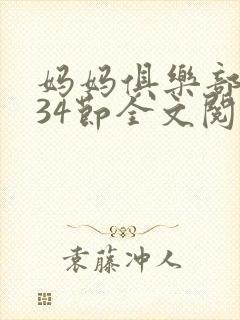 妈妈俱樂部
34节全文阅
袁藤冲人